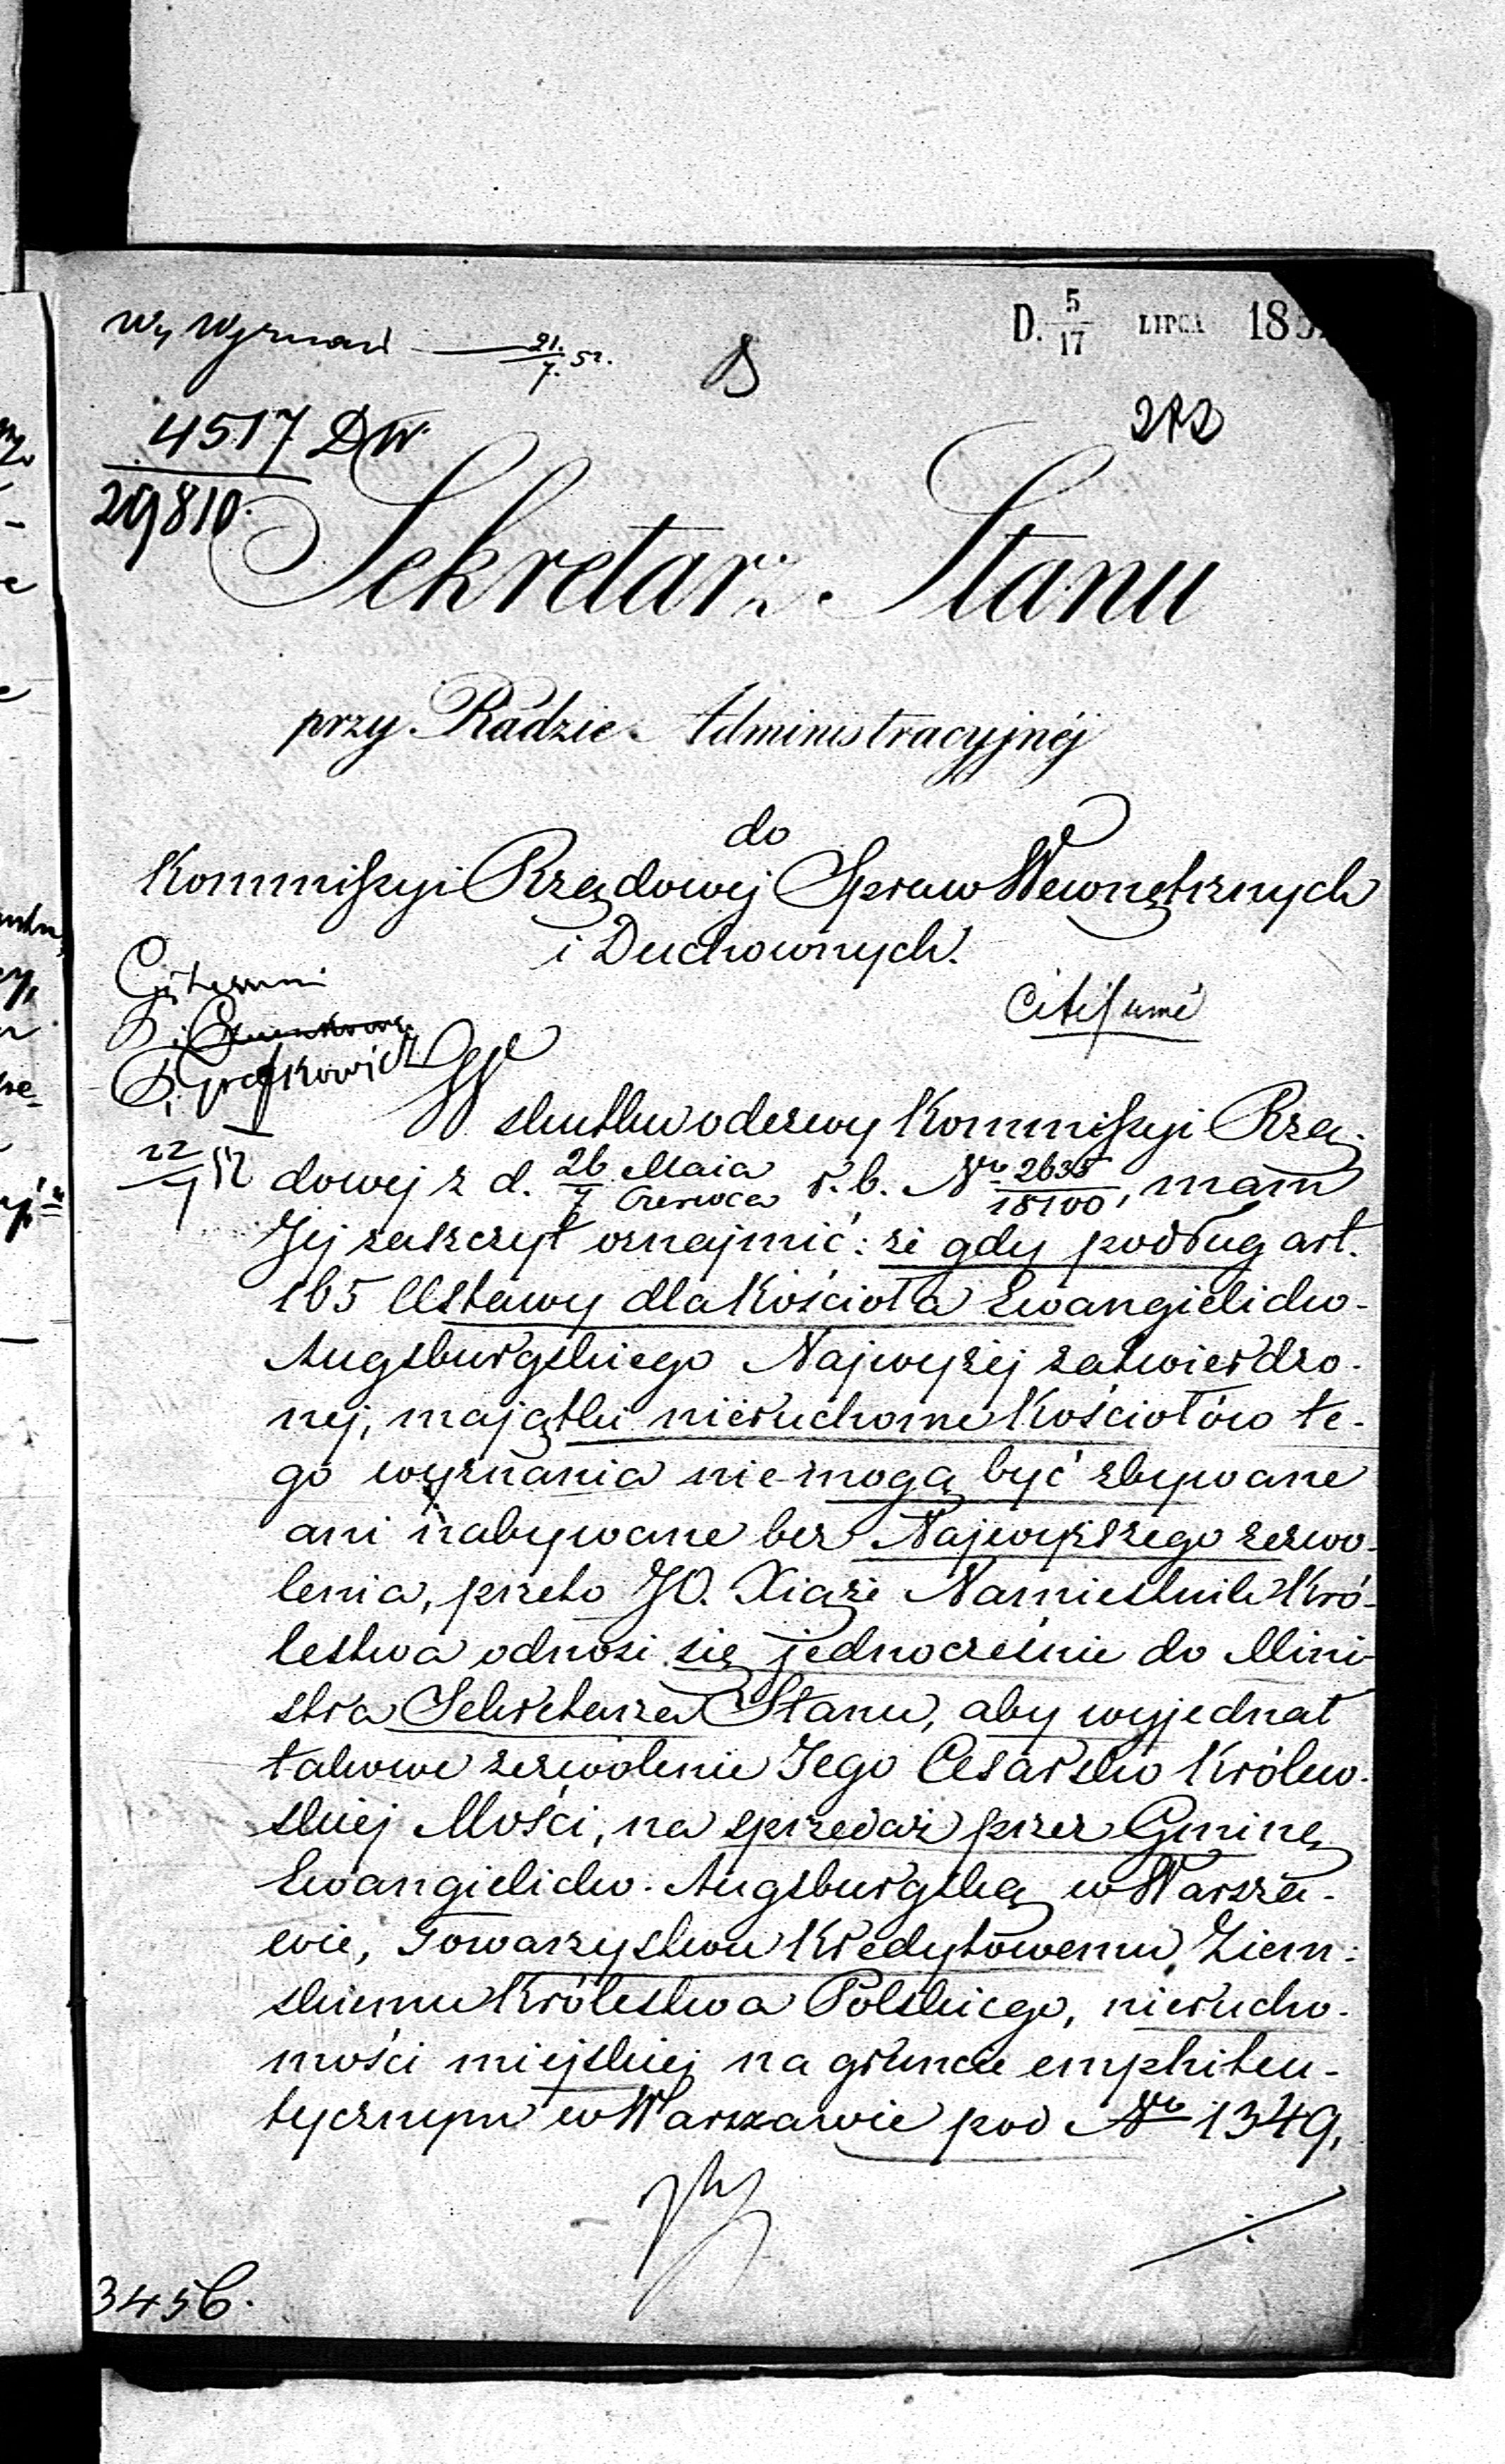 Wy Wyznań 21/7. 52.
D. 5/17 LIPCA 185
4517 DW
29810.
Sekretarz Stanu
przy Radzie Administracyjnéj
do
Kommissyi Rządowej Spraw Wewnętrznych
i Duchownych.
Citissime
22/7 52
W skutku odezwy Kommissyi Rzą-
dowej z d. 26 Maia/7 Czerwca r. b. No 2635/18100, mam
Jej zaszczyt oznajmić: że gdy podług art.
165 Ustawy dla Kościoła Ewangielicko-
Augsburgskiego Najwyżej zatwierdzo-
nej, majątki nieruchome Kościołów te-
go wyznania nie mogą być zbywane
ani nabywane bez Najwyższego zezwo-
lenia, przeto JO. Xiąże Namiestnik Kró-
lestwa odnosi się jednocześnie do Mini-
stra Sekretarza Stanu, aby wyjednał
takowe zezwolenie Jego Cesarsko Królew-
skiej Mości, na sprzedaż przez Gminę
Ewangielicko-Augsburgską w Warsza-
wie, Towarzystwu Kredytowemu Ziem-
skiemu Królestwa Polskiego, nierucho-
mości miejskiej na gruncie emphiteu-
tycznym w Warszawie pod No 1349,
3456.